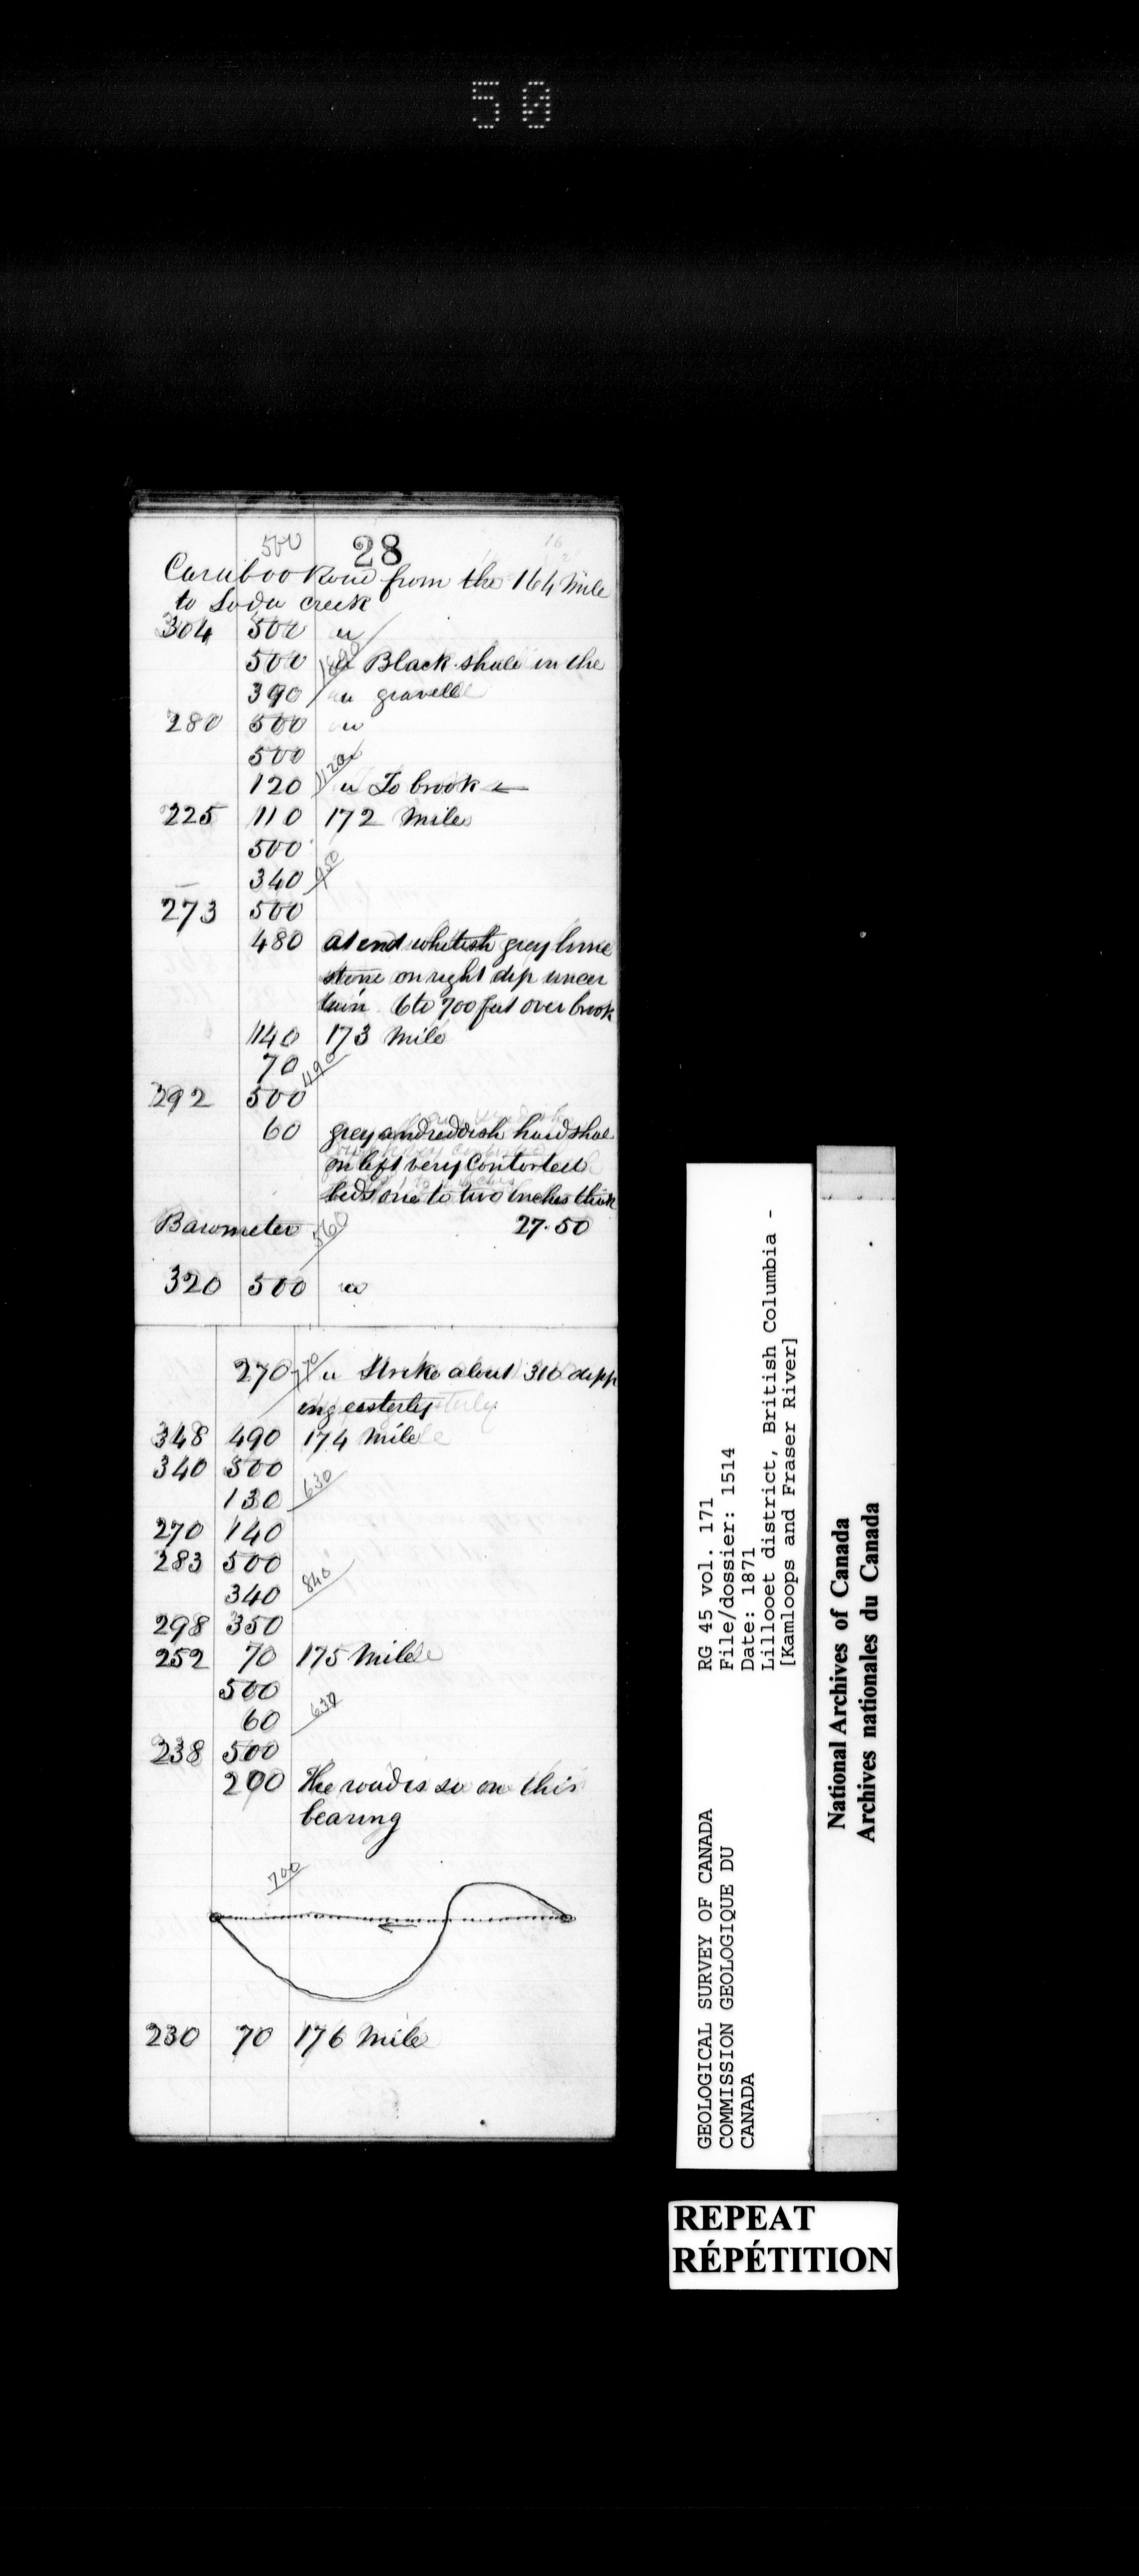 50
500 28
Cariboo Road from the 164 Mile
to Soda creek
304 500 "
500 " Black shale in the
390 " gravelle
280 500 "
500 "
120 " To brook ←
1120
225 110 172 Mile
500
340
950
273 500
480 at end whitish grey lime
stone on right dip uncer
tain 6 to 700 feet over brook
140 173 Mile
70
490
292 500
60 grey and reddish hard shale
on left very Contorted
beds one to two inches thick
Barometer 27.50
560
320 500 "
270 " Strike about 310 dipp
ing easterly
348 490 174 Mile
340 500
130
630
270 140
283 500
340
840
298 350
252 70 175 Mile
500
60
630
238 500
200 The road is so on this
bearing
700
230 70 176 Mile
GEOLOGICAL SURVEY OF CANADA
COMMISSION GEOLOGIQUE DU
CANADA
RG 45 vol. 171
File/dossier: 1514
Date: 1871
Lillooet district, British Columbia -
[Kamloops and Fraser River]
National Archives of Canada
Archives nationales du Canada
REPEAT
RÉPÉTITION